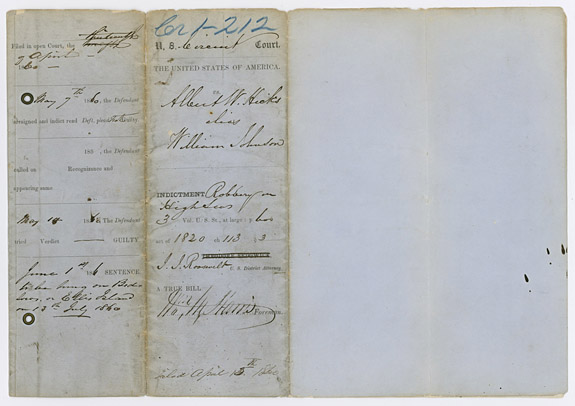 Filed in open Court, the
of April
May 7th 1860, the Defendant
arraigned and indict read Deft. pleads Not Guilty.
186 , the Defendant
called on Recognizance and
appearing same
May 18 186 The Defendant
tried Verdict — GUILTY
June 1st 6 SENTENCE
to be hung on
or Ellis Island
on 13th July 1860
Cr 1-212
U. S. Circuit Court.
THE UNITED STATES OF AMERICA.
vs.
Albert W. Hicks
alias
William Johnson
INDICTMENT Robbery on
High Seas
3 Vol. U. S. St., at large: p.
act of 1820 ch 113 § 3
J. J. Roosevelt
U. S. District Attorney.
A TRUE BILL
Foreman.
Filed April